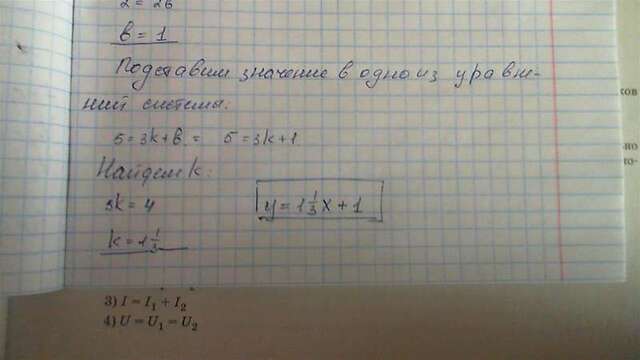 2 = 2в
в = 1
Подставим значение в одно из уравне-
ний системы:
5 = 3k + в = 5 = 3k + 1
Найдем k:
3k = 4
y = 1 1/3 x + 1
k = 1 1/3
3) I = I₁ + I₂
4) U = U₁ = U₂
ков
но
то-